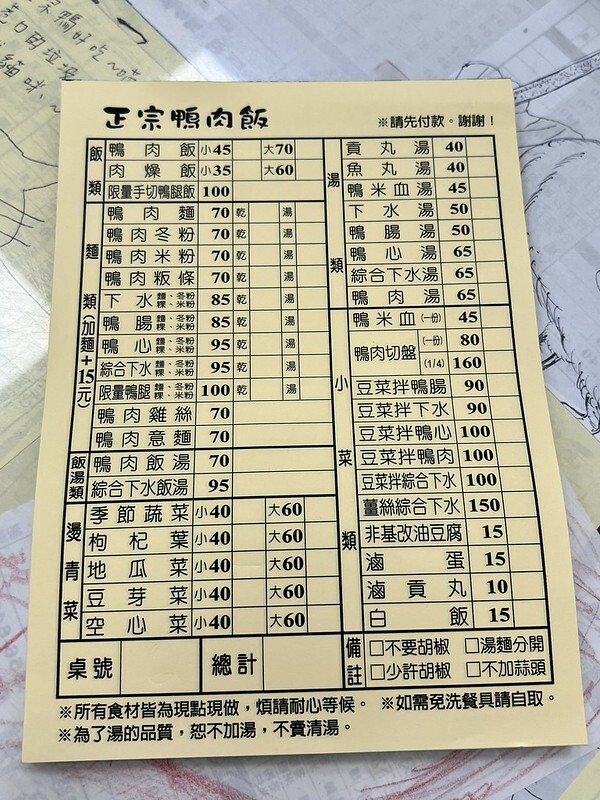 正宗鴨肉飯
※請先付款。謝謝!
飯類
鴨肉飯 小45 大70
肉燥飯 小35 大60
限量手切鴨腿飯 100
麵類(加麵+15元)
鴨肉麵 70 乾 湯
鴨肉冬粉 70 乾 湯
鴨肉米粉 70 乾 湯
鴨肉粄條 70 乾 湯
下水 麵、冬粉 粿、米粉 85 乾 湯
鴨腸 麵、冬粉 粿、米粉 85 乾 湯
鴨心 麵、冬粉 粿、米粉 95 乾 湯
綜合下水 麵、冬粉 粿、米粉 95 乾 湯
限量鴨腿 麵、冬粉 粿、米粉 100 乾 湯
鴨肉雞絲 70
鴨肉意麵 70
飯湯類
鴨肉飯湯 70
綜合下水飯湯 95
燙青菜
季節蔬菜 小40 大60
枸杞葉 小40 大60
地瓜菜 小40 大60
豆芽菜 小40 大60
空心菜 小40 大60
湯類
貢丸湯 40
魚丸湯 40
鴨米血湯 45
下水湯 50
鴨腸湯 50
鴨心湯 65
綜合下水湯 65
鴨肉湯 65
小菜類
鴨米血(一份) 45
鴨肉切盤 (一份) 80
(1/4) 160
豆菜拌鴨腸 90
豆菜拌下水 90
豆菜拌鴨心 100
豆菜拌鴨肉 100
豆菜拌綜合下水 100
薑絲綜合下水 150
非基改油豆腐 15
滷蛋 15
滷貢丸 10
白飯 15
桌號 總計
備註
□不要胡椒 □湯麵分開
□少許胡椒 □不加蒜頭
※所有食材皆為現點現做,煩請耐心等候。 ※如需免洗餐具請自取。
※為了湯的品質,恕不加湯,不賣清湯。